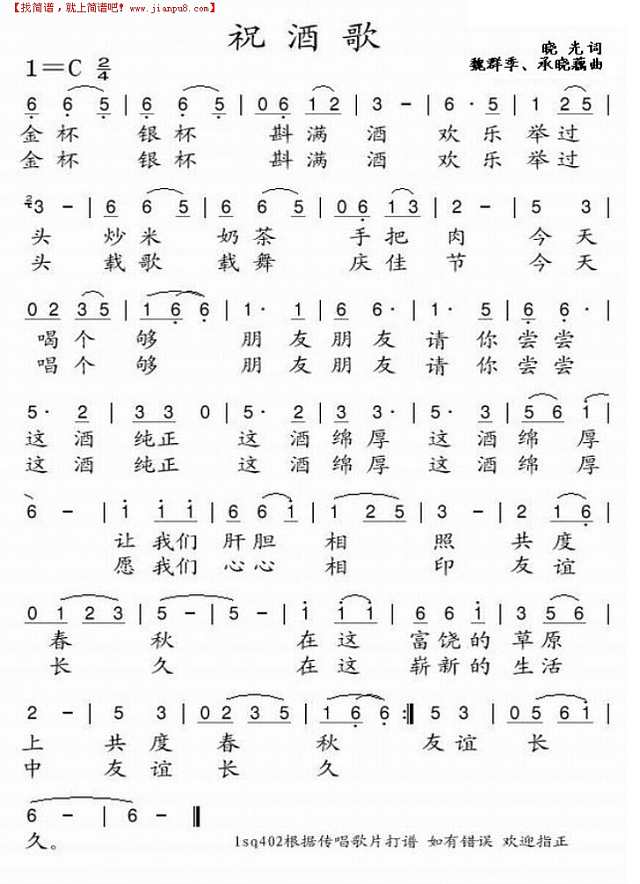 【找简谱，就上简谱吧！www.jianpu8.com】
祝酒歌
1=C 2/4
晓光词
魏群季、承晓藕曲
6 6 5 | 6 6 5 | 0 6 1 2 | 3 - | 6 · 5 | 1 2 5 |
金杯 银杯 斟满 酒 欢乐 举过
金杯 银杯 斟满 酒 欢乐 举过
2 3 - | 6 6 5 | 6 6 5 | 0 6 1 3 | 2 - | 5 3 |
头 炒米 奶茶 手把 肉 今天
头 载歌 载舞 庆佳 节 今天
0 2 3 5 | 1 6 6 | 1 · 1 | 6 6 · | 1 · 5 | 6 6 · |
喝个 够 朋友 朋友 请你 尝尝
唱个 够 朋友 朋友 请你 尝尝
5 · 2 | 3 3 0 | 5 · 2 | 3 3 · | 5 · 2 | 5 6 1 |
这酒 纯正 这酒 绵厚 这酒 绵厚
这酒 纯正 这酒 绵厚 这酒 绵厚
6 - | 1 1 1 | 6 6 1 | 1 2 5 | 3 - | 2 1 6 |
让我们 肝胆 相 照 共度
愿我们 心心 相 印 友谊
0 1 2 3 | 5 - | 5 - | 1 1 1 | 6 6 1 | 3 5 6 |
春 秋 在这 富饶的 草原
长 久 在这 崭新的 生活
2 - | 5 3 | 0 2 3 5 | 1 6 6 :| 5 3 | 0 5 6 1 |
上 共度 春 秋 友谊 长
中 友谊 长 久
6 - | 6 - ‖
久。
1sq402根据传唱歌片打谱 如有错误 欢迎指正